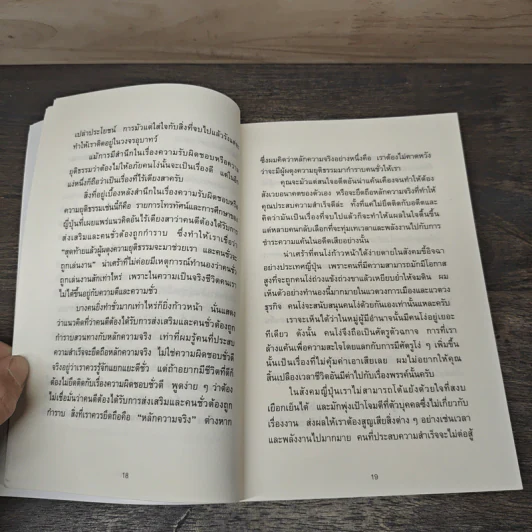 เปล่าประโยชน์ การมัวแต่ใส่ใจกับสิ่งที่จบไปแล้วรังแต่
ทำให้เราติดอยู่ในวงจรอุบาทว์
แม้การมีสำนึกในเรื่องความรับผิดชอบหรือความ
ยุติธรรมว่าต้องไม่ให้อภัยคนโง่นั้นจะเป็นเรื่องดี แต่ใน
แง่หนึ่งก็ถือว่าเป็นเรื่องที่ไร้เดียงสาครับ
สิ่งที่อยู่เบื้องหลังสำนึกในเรื่องความรับผิดชอบหรือ
ความยุติธรรมเช่นนี้ก็คือ รายการโทรทัศน์และการศึกษาของ
ญี่ปุ่นที่เผยแพร่แนวคิดอันไร้เดียงสาว่าคนดีต้องได้รับการ
ส่งเสริมและคนชั่วต้องถูกกำราบ ซึ่งทำให้เราเชื่อว่า
"สุดท้ายแล้วผู้ผดุงความยุติธรรมจะมาช่วยเรา และคนชั่วจะ
ถูกเล่นงาน" น่าเศร้าที่ไม่ค่อยมีเหตุการณ์ทำนองว่าคนชั่ว
ถูกเล่นงานสักเท่าไหร่ เพราะในความเป็นจริงชีวิตคนเรา
ไม่ได้ขึ้นอยู่กับความดีและความชั่ว
บางคนยิ่งทำชั่วมากเท่าไหร่ก็ยิ่งก้าวหน้า นั่นแสดง
ว่าแนวคิดที่ว่าคนดีต้องได้รับการส่งเสริมและคนชั่วต้องถูก
กำราบสวนทางกับหลักความจริง เท่าที่ผมรู้คนที่ประสบ
ความสำเร็จจะยึดถือหลักความจริง ไม่ใช่ความผิดชอบชั่วดี
จริงอยู่ว่าเราควรรู้จักแยกแยะดีชั่ว แต่ถ้าอยากมีชีวิตที่ดีก็
ต้องไม่ยึดติดกับเรื่องความผิดชอบชั่วดี พูดง่าย ๆ ว่าต้อง
ไม่เชื่อมั่นว่าคนดีต้องได้รับการส่งเสริมและคนชั่วต้องถูก
กำราบ สิ่งที่เราควรยึดถือคือ "หลักความจริง" ต่างหาก
18
ซึ่งผมคิดว่าหลักความจริงอย่างหนึ่งคือ เราต้องไม่คาดหวัง
ว่าจะมีผู้ผดุงความยุติธรรมมากำราบคนชั่วให้เรา
คุณจะมัวแต่สนใจอดีตอันน่าแค้นเคืองจนทำให้ต้อง
สังเวยอนาคตของตัวเอง หรือจะยึดถือหลักความจริงที่ทำให้
คุณประสบความสำเร็จดีล่ะ ทั้งที่แค่ไม่ยึดติดกับอดีตและ
คิดว่ามันเป็นเรื่องที่จบไปแล้วก็จะทำให้แผลในใจตื้นขึ้น
แต่หลายคนกลับเลือกที่จะทุ่มเทเวลาและพลังงานไปกับการ
ชำระความแค้นในอดีตเสียอย่างนั้น
น่าเศร้าที่คนโง่ก้าวหน้าได้ง่ายดายในสังคมขี้อิจฉา
อย่างประเทศญี่ปุ่น เพราะคนที่มีความสามารถมักมีโอกาส
สูงที่จะถูกคนโง่แว้งแทงข้างขาแล้วเหยียบย่ำให้จมดิน ผม
เห็นตัวอย่างทำนองนี้มากมายในแวดวงการเมืองและแวดวง
ธุรกิจ คนโง่จะสนับสนุนคนโง่ด้วยกันเองเท่านั้นแหละครับ
เราจะเห็นได้ว่าในหมู่ผู้มีอำนาจนั้นมีคนโง่อยู่เยอะ
ทีเดียว ดังนั้น คนโง่จึงถือเป็นศัตรูตัวฉกาจ การที่เรา
ล้างแค้นเพื่อความสะใจโดยแลกกับการมีศัตรูโง่ ๆ เพิ่มขึ้น
นั้นเป็นเรื่องที่ไม่คุ้มค่าเอาเสียเลย ผมไม่อยากให้คุณ
สิ้นเปลืองเวลาชีวิตอันมีค่าไปกับเรื่องพรรค์นั้นครับ
ในสังคมญี่ปุ่นเราไม่สามารถโต้แย้งด้วยใจที่สงบ
เยือกเย็นได้ และมักพุ่งเป้าโจมตีที่ตัวบุคคลซึ่งไม่เกี่ยวกับ
เรื่องงาน ส่งผลให้เราต้องสูญเสียสิ่งต่าง ๆ อย่างเช่นเวลา
และพลังงานไปมากมาย คนที่ประสบความสำเร็จจะไม่ต่อสู้
19